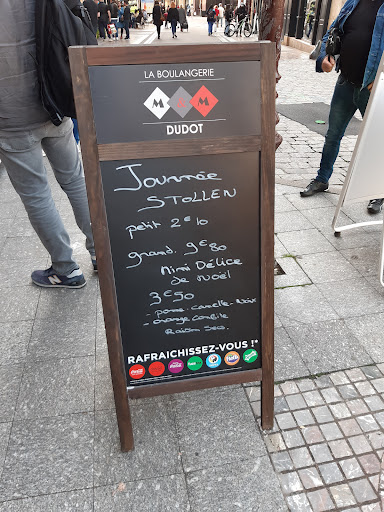 LA BOULANGERIE
M M M
DUDOT
Journée
STOLLEN
petit 2€10
grand. 9€80
Mini Délice
de Noël
3€50
- pomme - canelle - Noix
- orange confite
Raisin Secs.
RAFRAICHISSEZ-VOUS !*